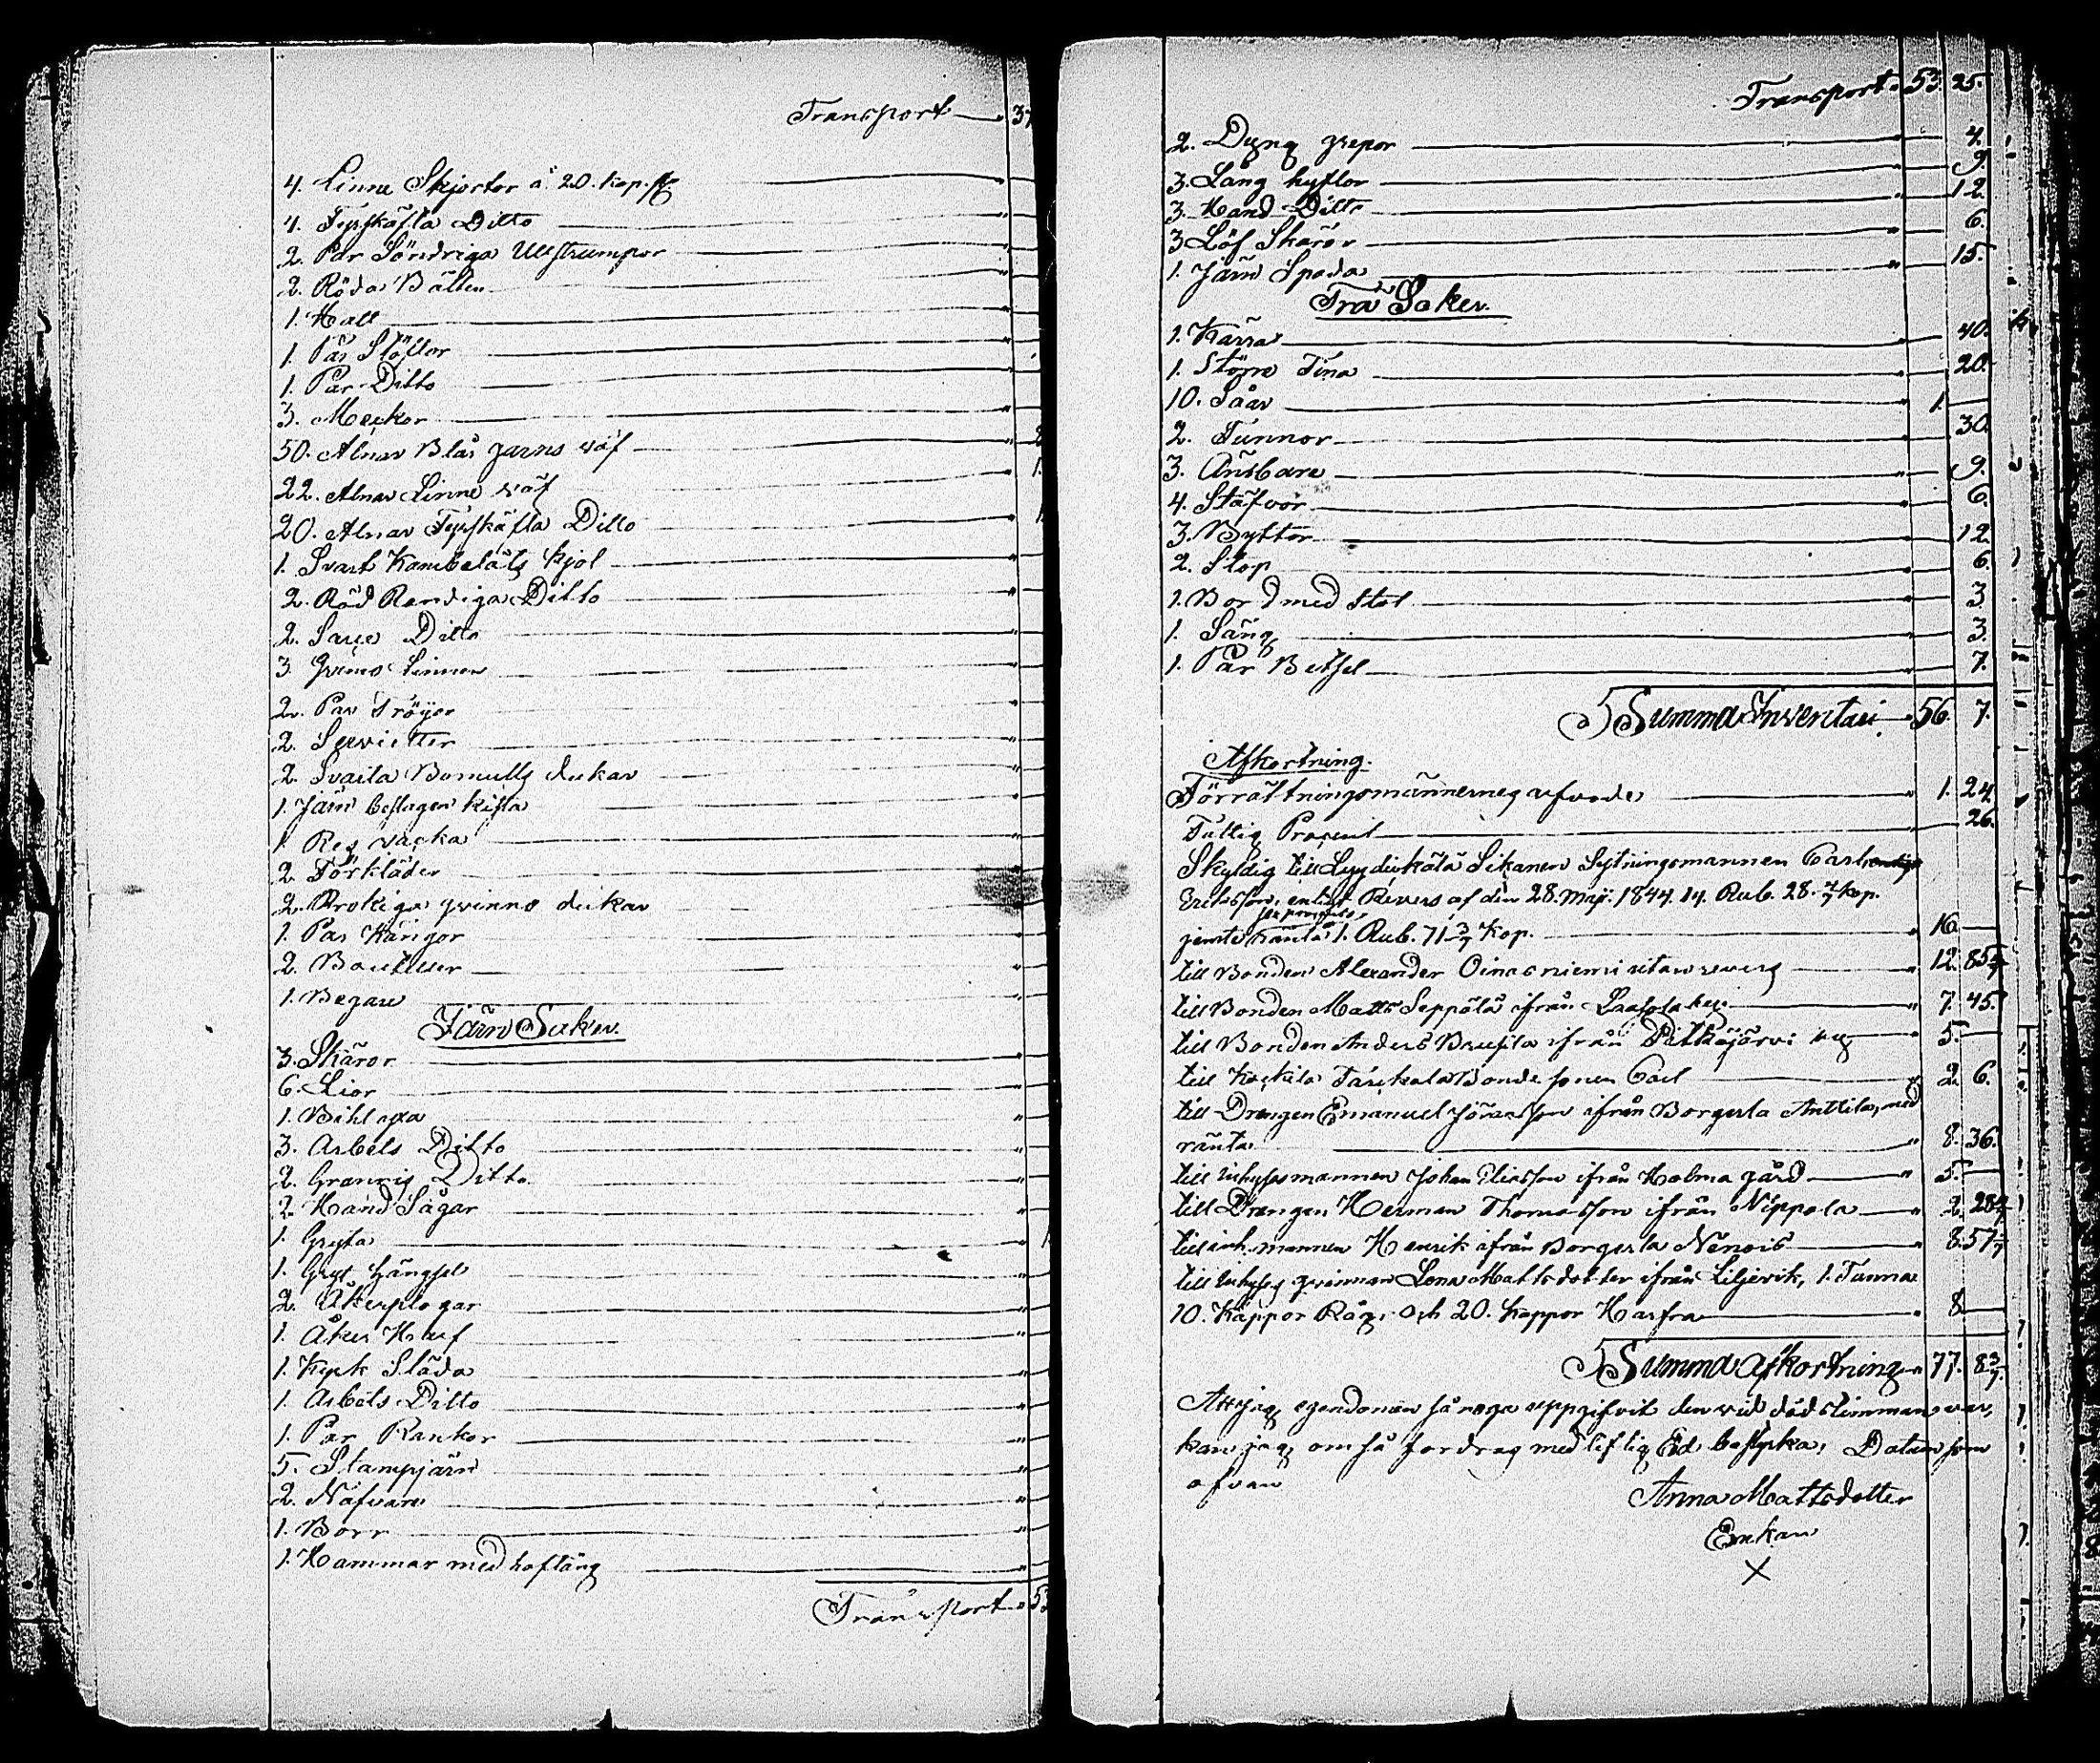 Transport 37
4. Linne Skjortor a 20. kop.
4. Tysskäfta Ditto
2. Par Söndriga Ullstrumpor
2. Röda Bälten
1. Hatt
1. Par Stöflor
1. Par Ditto
3. Myckor
50. Alnar Blår garns väf
22. Alnar Linne väf
20. Alnar Tysskäfta Ditto 1.
1. Svart Kambelåts kjol
2. Röd Randiga Ditto
2. Ditto
3. Linnen
2. Par Tröyor
2. Servietter
2. Svarta Bomulls dukar
1. Järn beslagen kista
1. Res väcka
2. Förkläder
2. Brokiga qvinno dukar
1. Par Kängor
2. Bouteller
1. Begare
Järn Saker.
3. Skäror
6. Lior
1. Bihl yxa
3. Arbets Ditto
2. Ditto
2. Hand Sågar
1. Gryta
1. Gryt hängsel
2. Åkerplogar
1. Åker Harf
1. Kyrk Släda
1. Arbets Ditto
1. Par Rankor
5. Stampjärn
2. Näfvare
1. Borr
1. Hammar med hoftång
Transport 53
Transport 53 25.
2. Dyng grepor 4.
3. Lång hyflor 9.
3. Hand Ditto 12
3 Löf Skäror 6.
1. Järn Spada 15.
Trä Saker.
1. Kärra 40.
1. Större Tina 20.
10. Såar 1.
2. Tunnor 30
3. Ämbare 9.
4. Stäfvor 6.
3. Byttor 12
2. Stop 6.
1. Bord med Stol 3
1. Säng 3.
1. Par Betsel 7.
Summa Inventari 56. 7.
Afkortning.
Förrättningsmännernes arfvode 1. 24
Fattig Procent 26.
Skyldig till Sikanen Sytningsmannen Carl
Ericsson, enligt Revers af den 28. Maji 1844. 14. Rub. 28. 4/7 kop.
jemte ränta 1. Rub. 71 3/7 Kop. 16
till Bonden Alexander Oinasniemi utan revers 12. 85
till Bonden Matts Seppälä ifrån 7. 45.
till Bonden Anders ifrån Pitkäjärvi 5.
till Bonde sonen Carl 2. 6.
till Drengen Emanuel Jöransson ifrån Borgerla Anttila, med
ränta 8. 36.
till inhysesmannen Johan Eliasson ifrån Holma gård 5.
till Drengen Herman Thomasson ifrån Nippala 2. 28 4/7
till inh. mannen Henrik ifrån Borgerla 8. 57 1/7
till inhyses qvinnan Lena Mattsdotter ifrån Liljevik, 1. Tunna
10. Kappor Råg, och 20. kappor Hafra 8
Summa Afkortning 77. 8 3/7.
Att jag egendomen så noga uppgifvit den vid dödstimman var,
kan jag, om så fordras med liflig Ed bestyrka, Datum som
ofvan
Anna Mattsdotter
Enkan
X